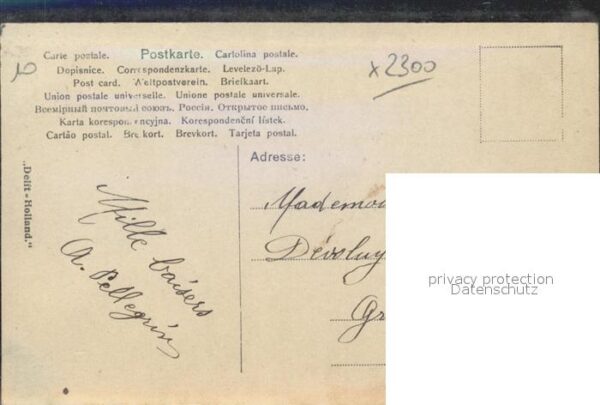 Carte postale. Postkarte. Cartolina postale.
Dopisnice. Correspondenzkarte. Levelező-Lap.
Post card. Weltpostverein. Briefkaart.
Union postale universelle. Unione postale universale.
Всемірный почтовый союзъ. Россія. Открытое письмо.
Karta korespondencyjna. Korespondenční lístek.
Cartão postal. Brevkort. Brevkort. Tarjeta postal.
x2300
10
Adresse:
„Delft-Holland."
Mille baisers
A. Pellegrin
Mademoi
Dévoluy
Gr
privacy protection
Datenschutz